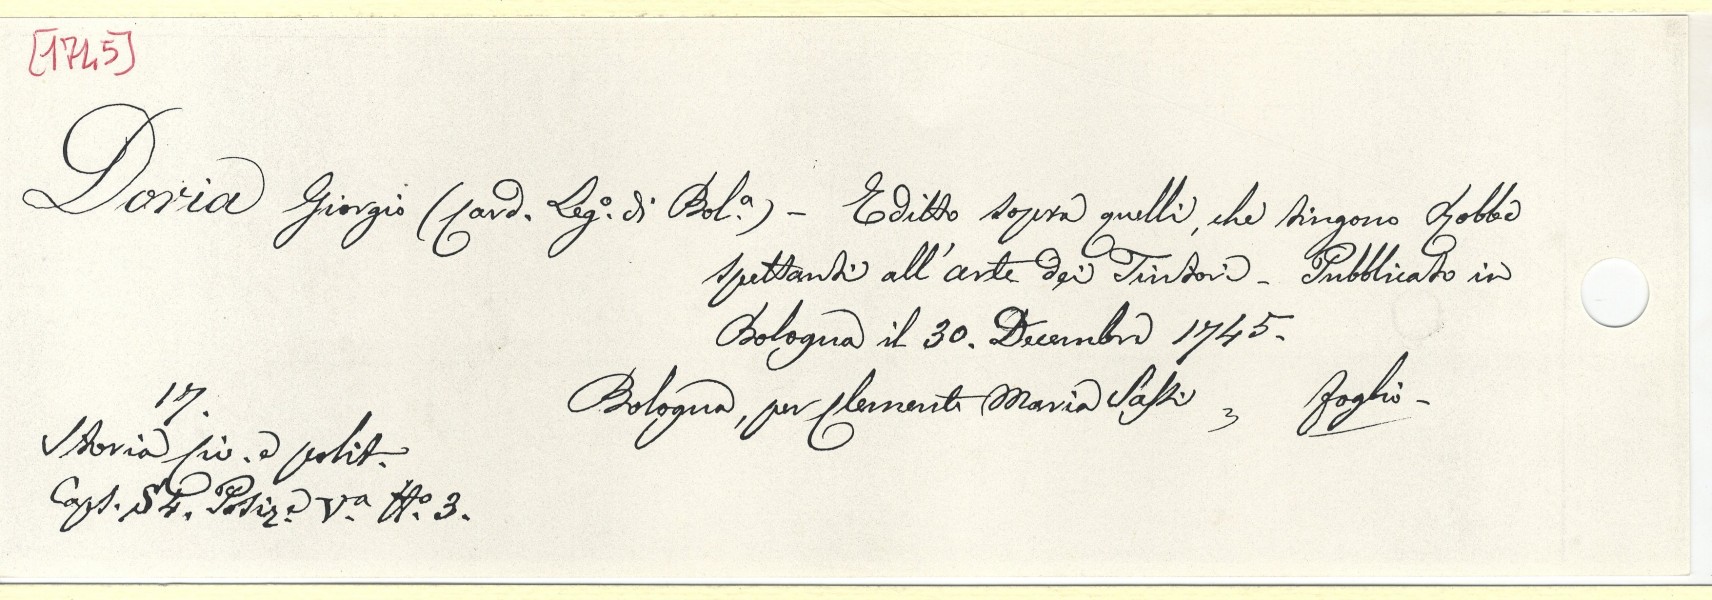 [1745]
Doria Giorgio (Card. Leg.º di Bol.ª) - Editto sopra quelli, che tingono Robbe
spettanti all'arte dei Tintori - Pubblicato in
Bologna il 30. Decembre 1745.
Bologna, per Clemente Maria Sassi, foglio -
17.
Storia civ. e polit.
Caps. S4. Posiz.e V.ª Nº. 3.